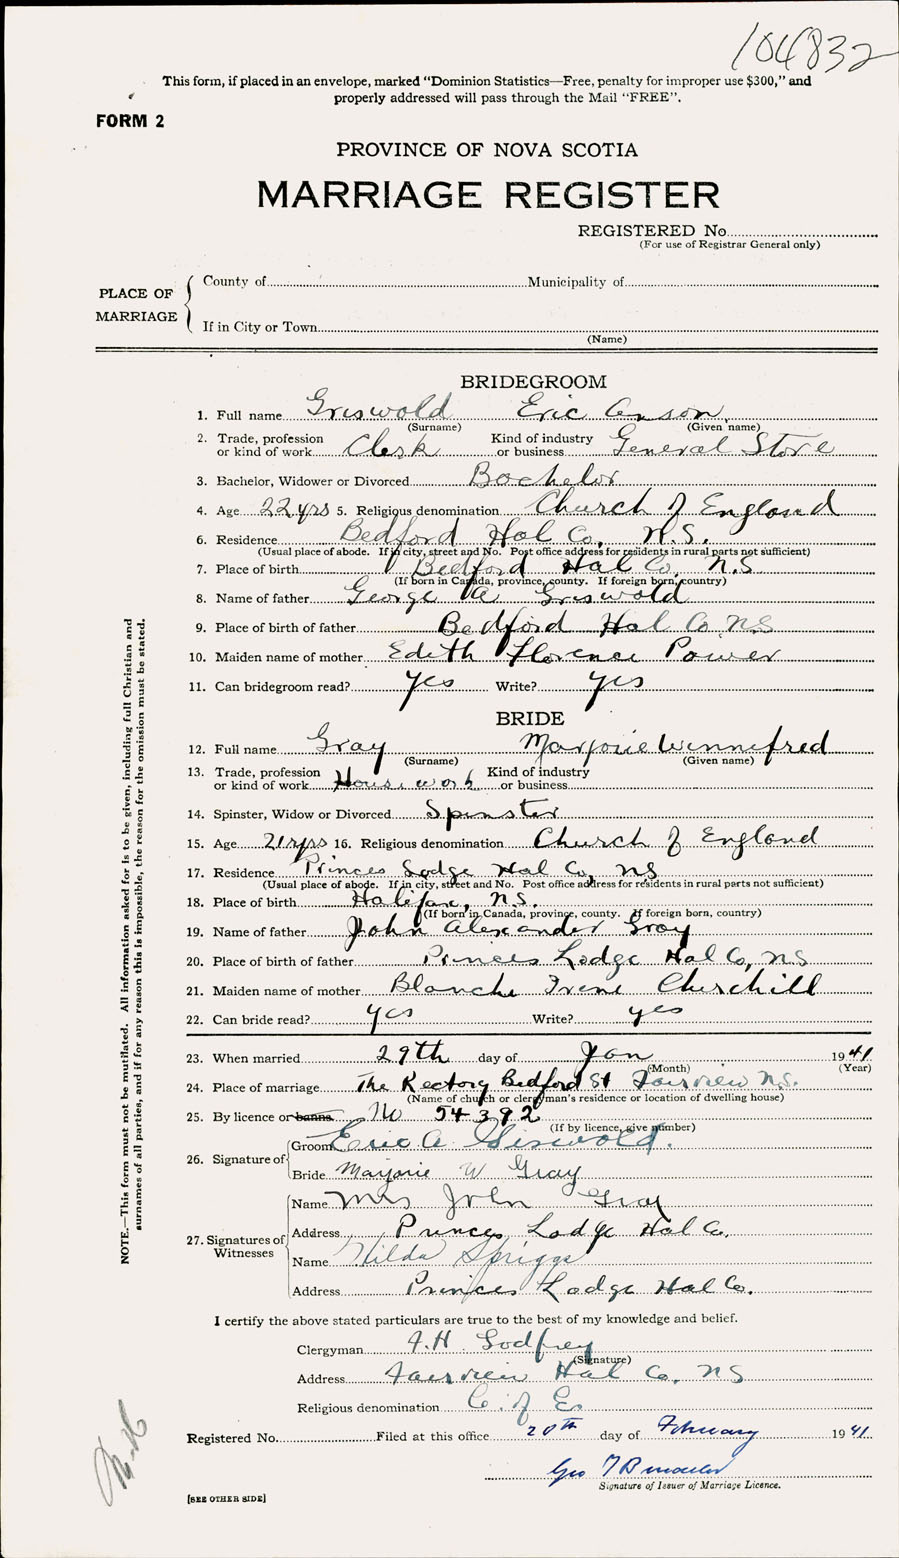 104832
This form, if placed in an envelope, marked "Dominion Statistics—Free, penalty for improper use $300," and
properly addressed will pass through the Mail "FREE".
FORM 2
PROVINCE OF NOVA SCOTIA
MARRIAGE REGISTER
REGISTERED No.
(For use of Registrar General only)
PLACE OF MARRIAGE
County of Municipality of
If in City or Town
(Name)
BRIDEGROOM
1. Full name Griswold Eric Anson
(Surname) (Given name)
2. Trade, profession or kind of work Clerk Kind of industry or business General Store
3. Bachelor, Widower or Divorced Bachelor
4. Age 22 yrs 5. Religious denomination Church of England
6. Residence Bedford Hal Co. N.S.
(Usual place of abode. If in city, street and No. Post office address for residents in rural parts not sufficient)
7. Place of birth Bedford Hal Co. N.S
(If born in Canada, province, county. If foreign born, country)
8. Name of father George A Griswold
9. Place of birth of father Bedford Hal Co. NS
10. Maiden name of mother Edith Florence Power
11. Can bridegroom read? yes Write? yes
BRIDE
12. Full name Gray Marjorie Winnefred
(Surname) (Given name)
13. Trade, profession or kind of work House work Kind of industry or business
14. Spinster, Widow or Divorced Spinster
15. Age 21 yrs 16. Religious denomination Church of England
17. Residence Princes Lodge Hal Co, NS
(Usual place of abode. If in city, street and No. Post office address for residents in rural parts not sufficient)
18. Place of birth Halifax, N.S.
(If born in Canada, province, county. If foreign born, country)
19. Name of father John Alexander Gray
20. Place of birth of father Princes Lodge Hal Co, NS
21. Maiden name of mother Blanche Irene Churchill
22. Can bride read? yes Write? yes
23. When married 29th day of Jan 1941
(Month) (Year)
24. Place of marriage The Rectory Bedford St Fairview N.S.
(Name of church or clergyman's residence or location of dwelling house)
25. By licence or banns. No 54392
(If by licence, give number)
26. Signature of
Groom Eric A Griswold.
Bride Marjorie W Gray
27. Signatures of Witnesses
Name Mrs John Gray
Address Princes Lodge Hal Co.
Name Hilda Spriggs
Address Princes Lodge Hal Co.
I certify the above stated particulars are true to the best of my knowledge and belief.
Clergyman Godfrey
(Signature)
Address Fairview Hal Co. NS
Religious denomination C. of E.
Registered No. Filed at this office 20th day of February 1941.
Geo
Signature of Issuer of Marriage Licence.
[SEE OTHER SIDE]
NOTE.—This form must not be mutilated. All information asked for is to be given, including full Christian and
surnames of all parties, and if for any reason this is impossible, the reason for the omission must be stated.